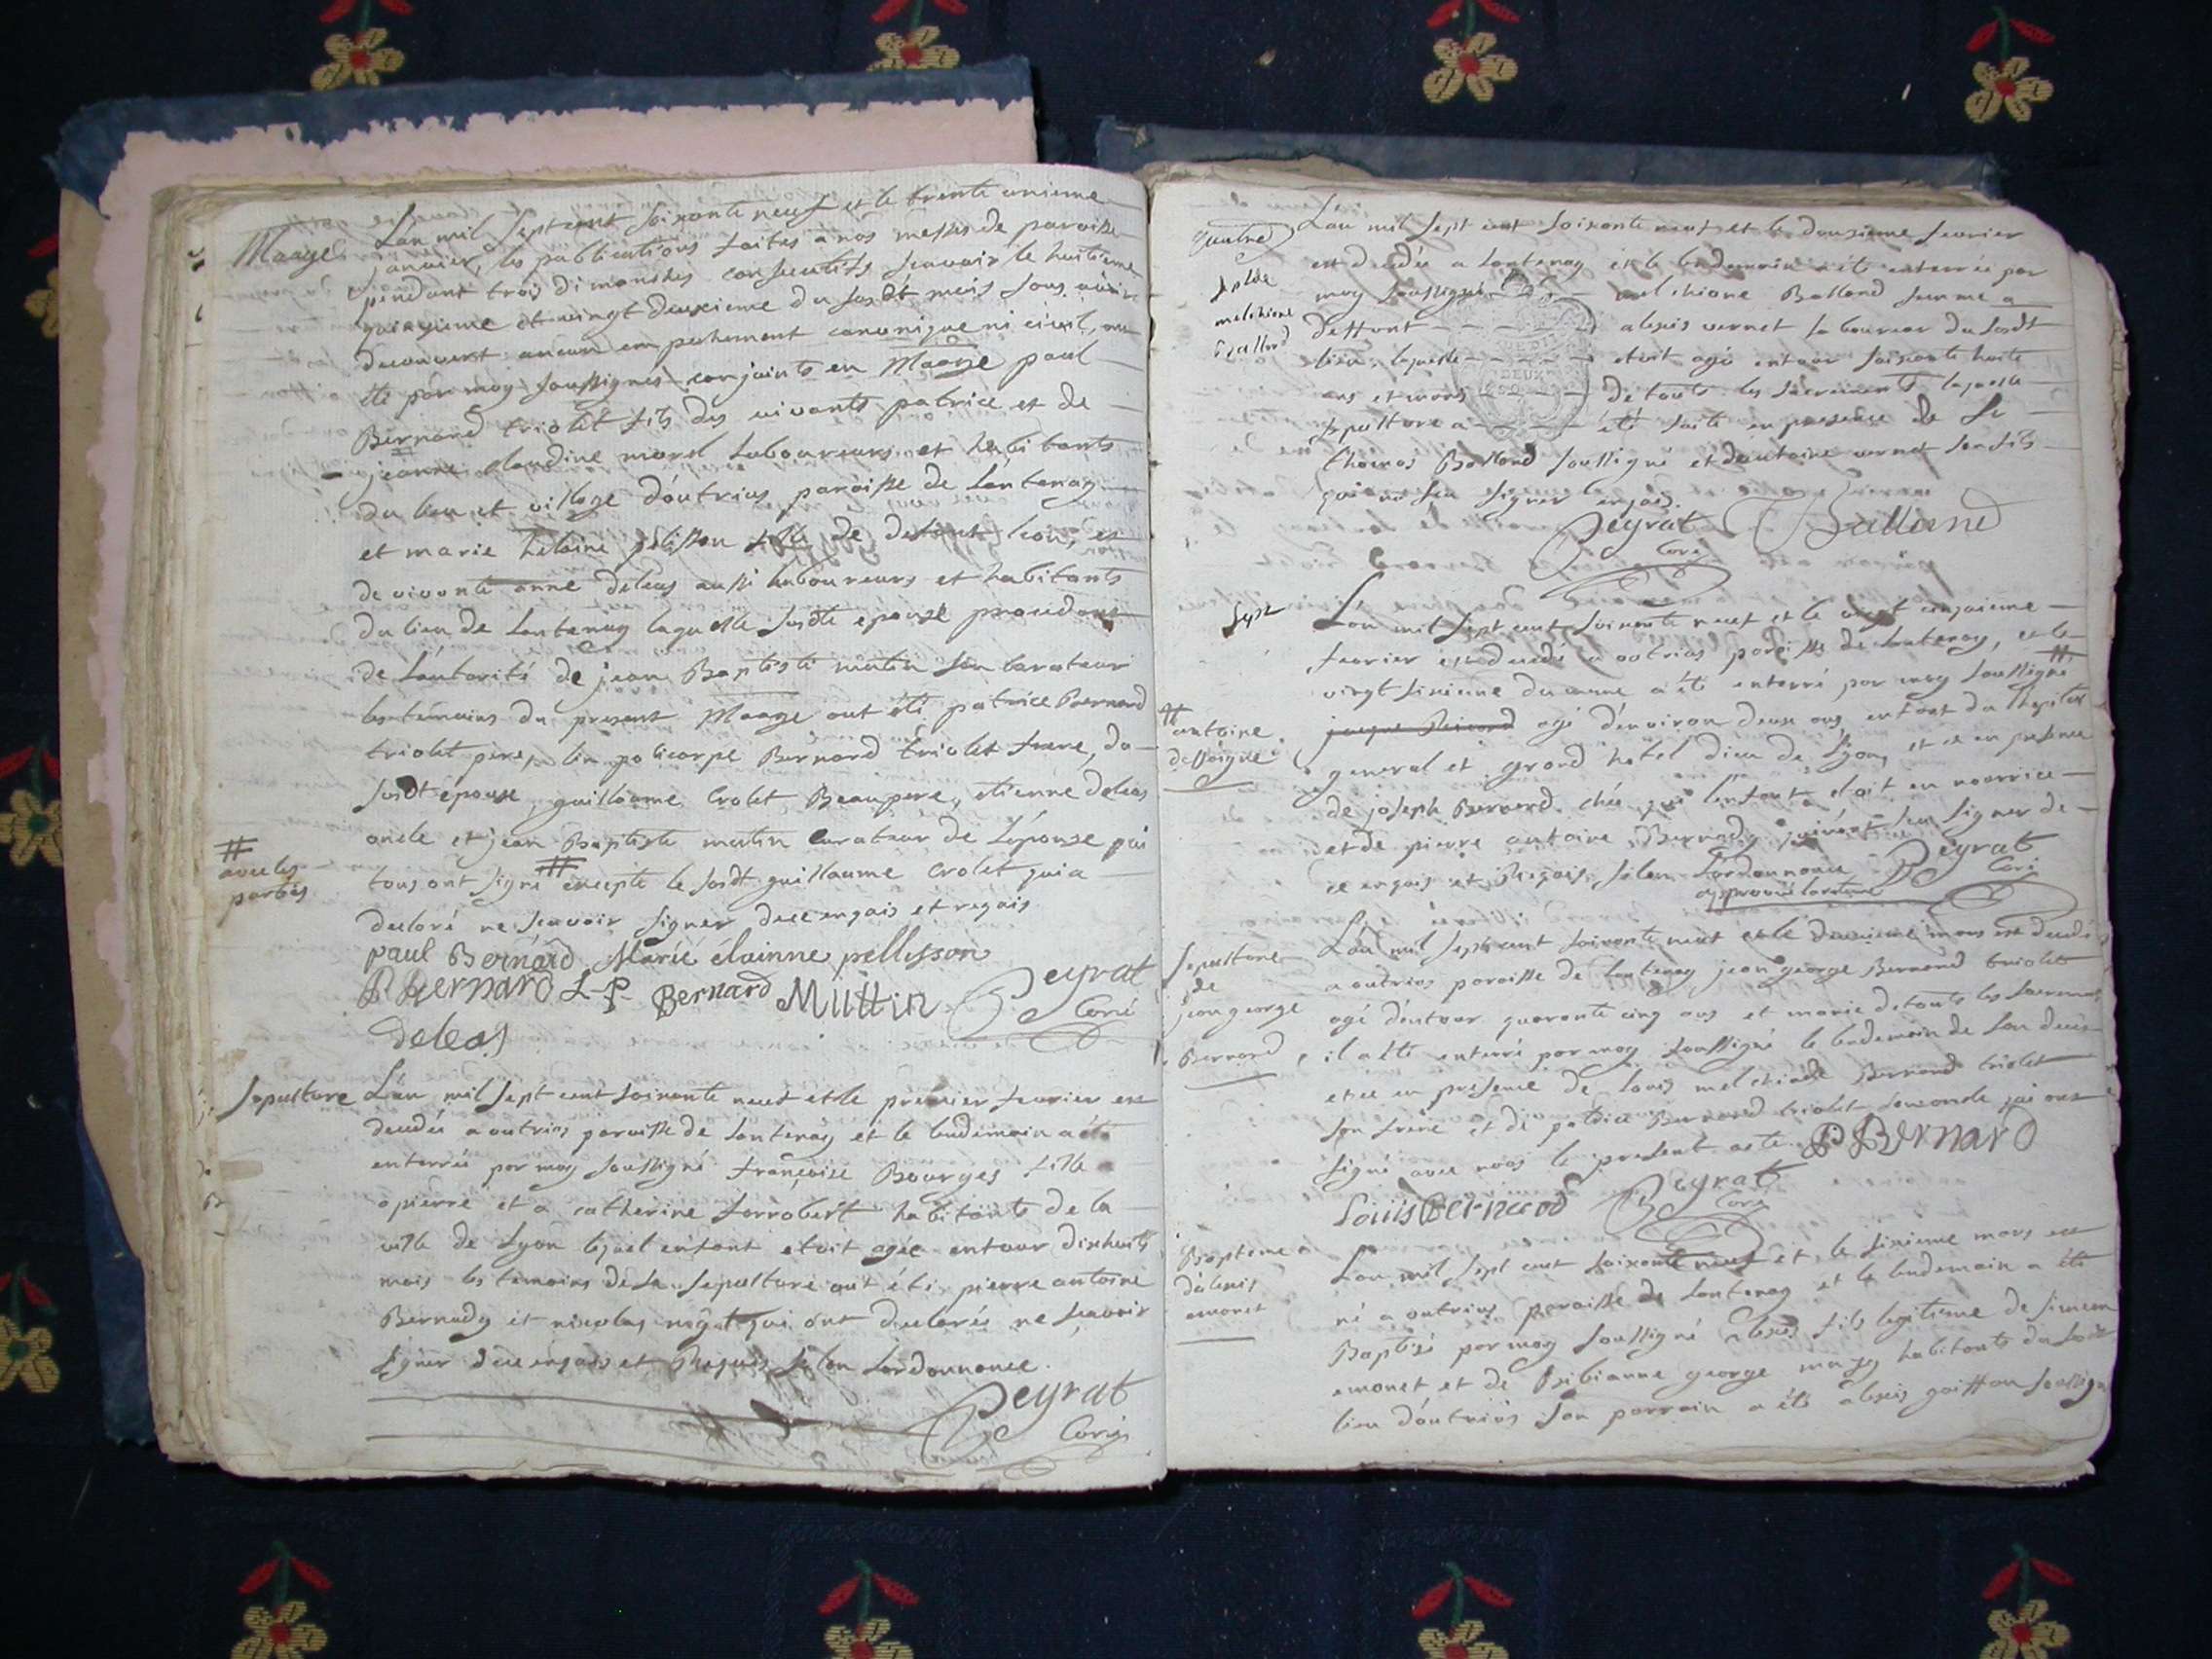 Mariage
L'an mil sept cent soixante neuf et le trente unieme
janvier, les publications faites a nos messes de paroisse
pendant trois dimanches consecutifs scavoir le huitieme
quinzieme et vingt deuxieme du susdt mois sans avoir
decouvert aucun empechement canonique ni civil, ont
été par moy soussigné conjoints en Maage paul
Bernard triolet fils des vivants patrice et de
jeanne claudine morel laboureurs et habitants
du lieu et village d'outrias paroisse de Lantenay
et marie helaine pelisson fille de defunt leon, et
de vivante anne deleas aussi laboureurs et habitants
du lieu de Lantenay laquelle susdte epouse procedant
de l'autorité de jean Baptiste mutin son curateur
les temoins du present Maage ont été patrice Bernard
triolet pere, lin policarpe Bernard triolet frere, du
susdt epoux, guillaume Crolet Beaupere, etienne deleas
oncle et jean Baptiste mutin curateur de l'épouse qui
tous ont signé # excepté le susdt guillaume Crolet qui a
declaré ne scavoir signer de ce enquis et requis
# avec les
parties
paul Bernard Marie élainne pellisson
P Bernard L-P- Bernard Muttin Peyrat
Curé
deleas
Sepulture
L'an mil sept cent soixante neuf et le premier fevrier est
decedée a outrias paroisse de Lantenay et le lendemain a été
enterrée par moy soussigné françoise Bourges fille
a pierre et a catherine forrobert habitants de la
ville de Lyon lequel enfant etoit agée entour dixhuit
mois les temoins de sa sepulture ont été pierre antoine
Bernady et nicolas nigat qui ont declarés ne scavoir
signer de ce enquis et Requis selon L'ordonnance.
Peyrat
Curé
quatre
Seplre
melchione
Balland
L'an mil sept cent soixante neuf et le douzieme fevrier
est decedée a Lantenay et le lendemain a été enterrée par
moy soussigné melchione Balland femme a
deffunt alexis vernet laboureur du susdt
lieu, laquelle etoit agée entour soixante huite
ans et munis de touts les sacrements laquelle
sepulture a été faite en presence de Sr
thomas Balland soussigné et d'antoine vernet son fils
qui n'a sçu signer enquis.
Peyrat Balland
Curé
Sepre
# antoine
delloigne
L'an mil sept cent soixante neuf et le vingt cinquieme
fevrier est decedé a outrias paroisse de Lantenay, et le
vingt sixieme du meme a été enterré par moy soussigné #
agé d'environ deux ans, enfant du l'hopital
general et grand hotel dieu de Lyon, et ce en presence
de joseph Bernard chés qui l'enfant etoit en nourrice
et de pierre antoine Bernady qui n'ont sçu signer de
ce enquis et Requis selon L'ordonnance Peyrat
approuvé la rature Curé
Sepulture
de
jean george
Bernard
L'an mil sept cent soixante neuf et le deuxieme mars est decedé
a outrias paroisse de Lantenay jean george Bernard triolet
agé d'entour quarante cinq ans et munis de touts les sacrements
il a été enterré par moy soussigné le lendemain de son deces
et ce en presence de Louis melchiade Bernard triolet
son frere et de patrice Bernard triolet son oncle qui ont
signé avec nous le present acte. P Bernard
Louis Bernard Peyrat
Curé
Bapteme
d'alexis
emonet
L'an mil sept cent soixante neuf et le sixieme mars est
né a outrias paroisse de Lantenay et le lendemain a été
Baptisé par moy soussigné alexis fils legitime de simeon
emonet et de Bibianne george mariés habitants du susdt
lieu d'outrias son parrain a été alexis goiffon soussigné
DEUX